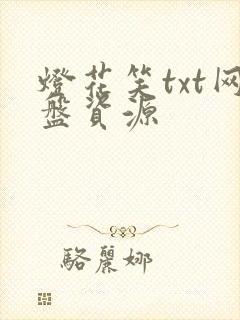 燈花笑txt网
盤資源
駱麗娜